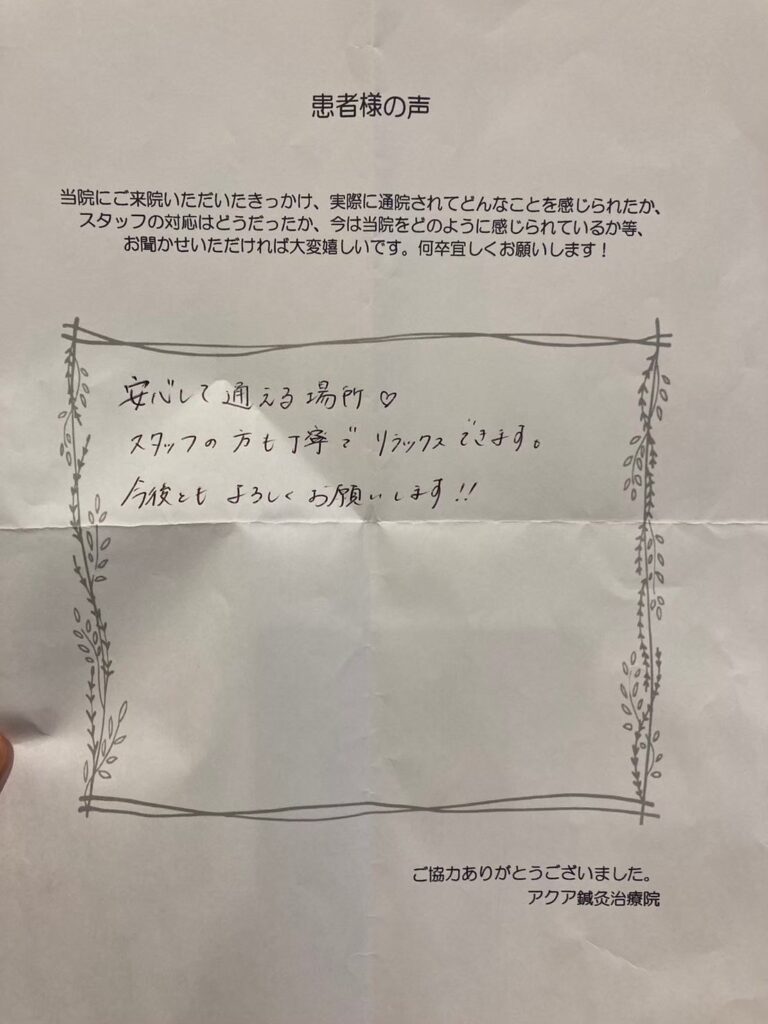 患者様の声
当院にご来院いただいたきっかけ、実際に通院されてどんなことを感じられたか、
スタッフの対応はどうだったか、今は当院をどのように感じられているか等、
お聞かせいただければ大変嬉しいです。何卒宜しくお願いします！
安心して通える場所♡
スタッフの方も丁寧でリラックスできます。
今後ともよろしくお願いします!!
ご協力ありがとうございました。
アクア鍼灸治療院